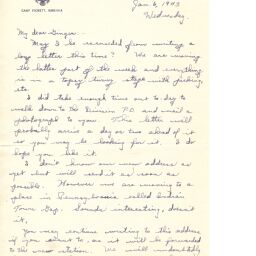 CAMP PICKETT, VIRGINIA
Jan 6, 1943
Wednesday.
My dear Ginger—
May I be excused from writing a
long letter this time? We are moving
the latter part of the week and everything
is in a topsy turvy stage with packing
etc.
I did take enough time out to-day to
walk down to the Division P.O. and mail a
photograph to you. This letter will
probably arrive a day or two ahead of it
so you may be looking for it. I do
hope you like it.
I don't know our new address as
yet but will send it as soon as
possible. However we are moving to a
place in Pennsylvania called Indian
Town Gap. Sounds interesting, doesn't
it.
You may continue writing to this address
if you want to, as it will be forwarded
to the new station. We will undoubtedly